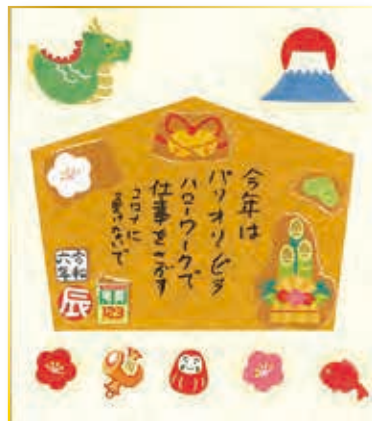 今年は
パリオリピタ
ハローワークで
仕事をさがす
コロナに
負けないで
令和
六年
辰